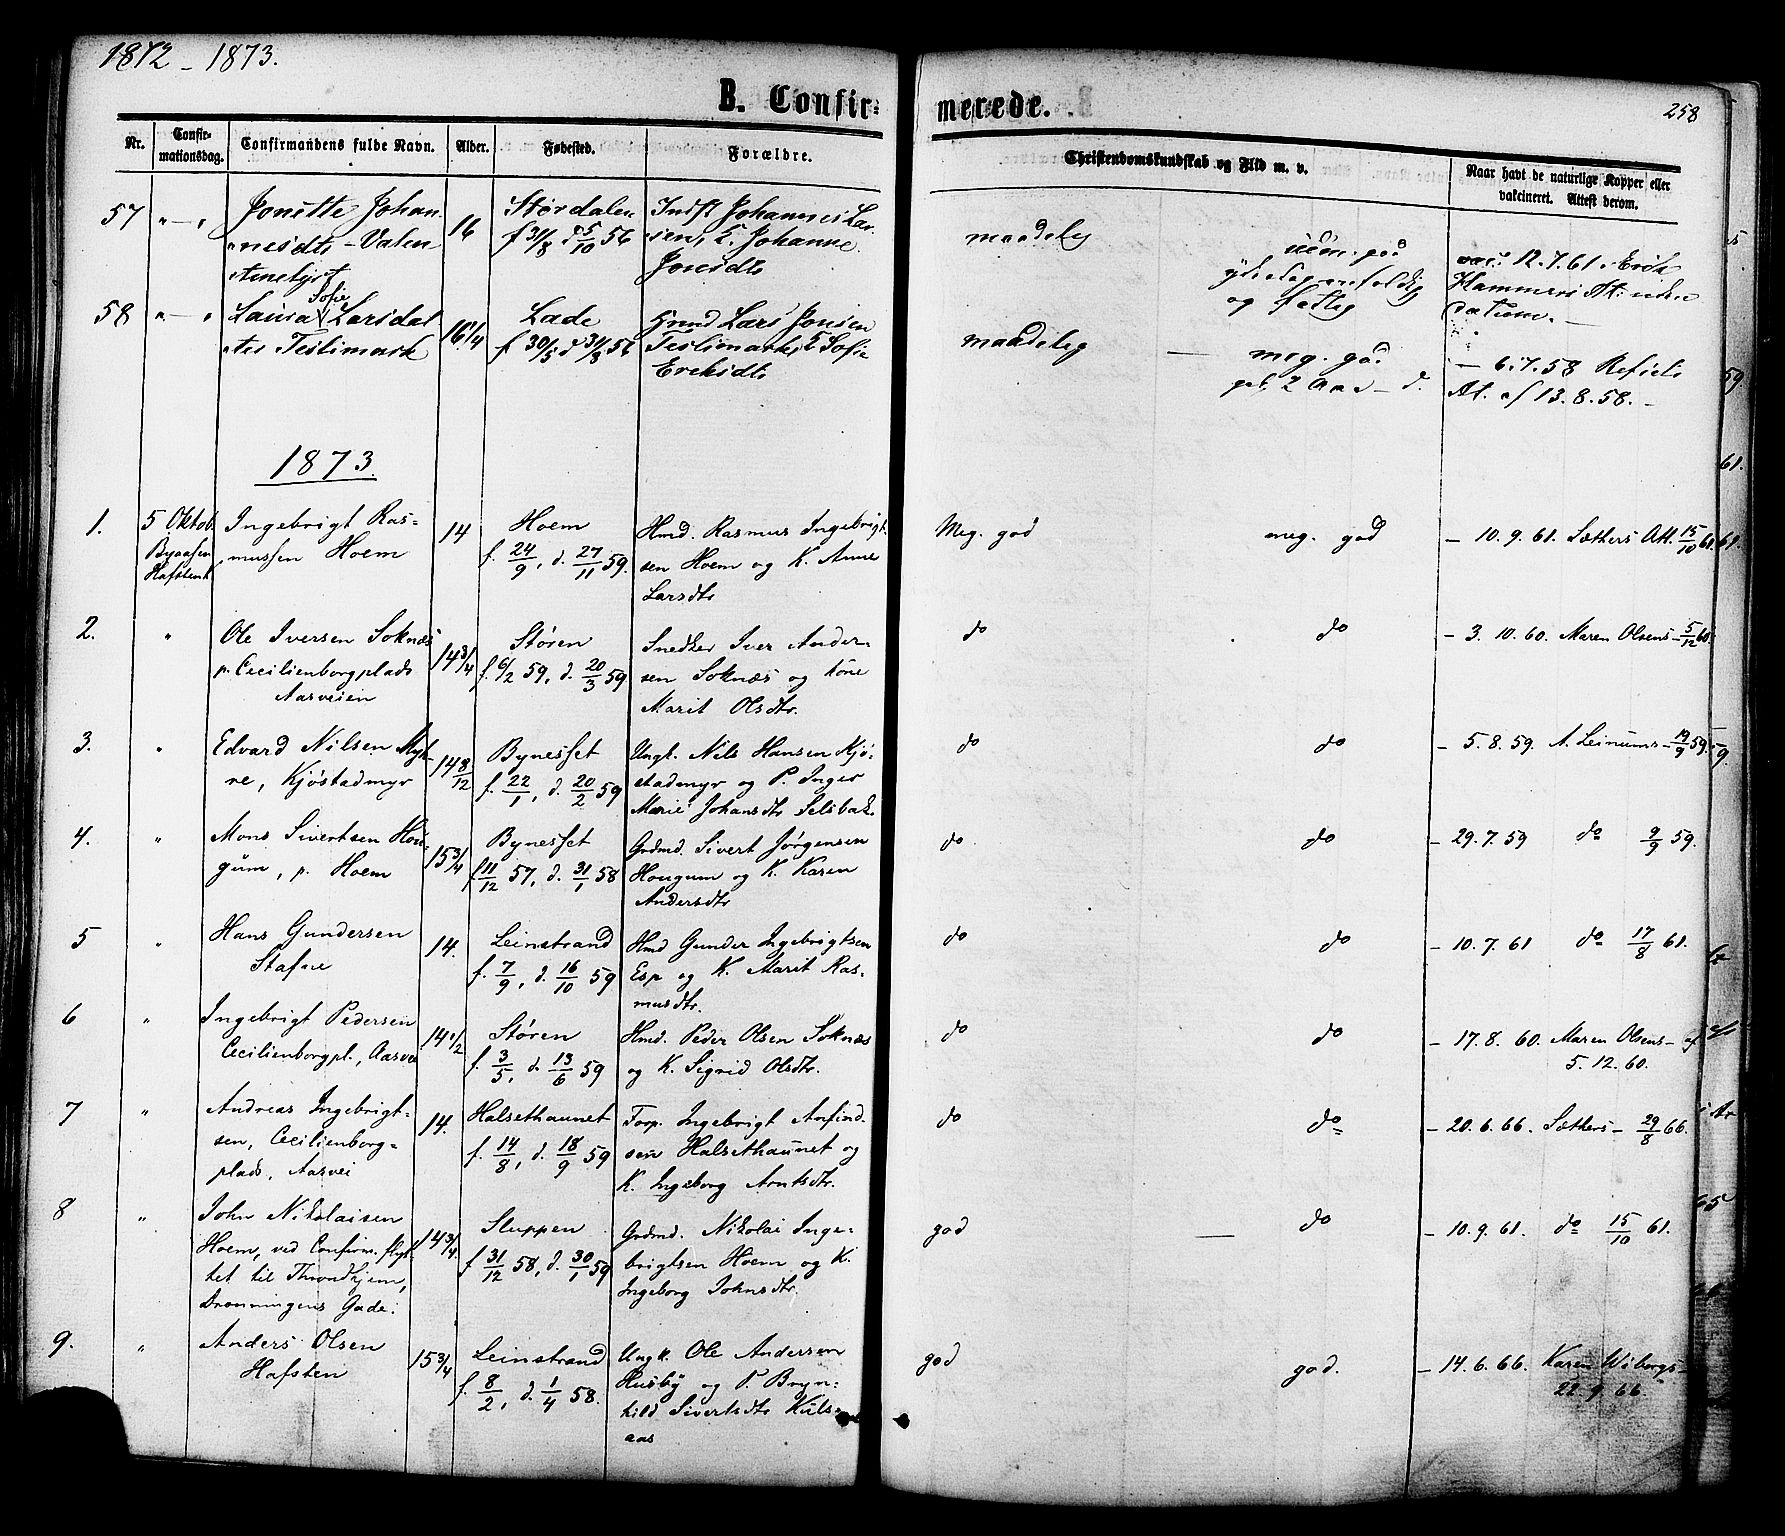 1872 - 1873.
B. Confir=
merede.
258
Nr.
Confir-
mationsdag.
Confirmandens fulde Navn.
Alder.
Fødested.
Forældre.
Christendomskundskab og Flid m. v.
Naar havt de naturlige Kopper eller
vakcineret. Attest derom.
57 " — " Jonette Johan 16 Størdalen Indst Johannes Lar maadelig udm. god vac. 12.7.61.
nesdtr - Valen f 31/8 d 5/10 56 sen, K. Johanne
Jonsdtr og
58 " — " Laura Sofie Larsdat 16 1/4 Lade Grmd Lars Jonsen maadelig — meg. god
ter Teslimark f 30/5 d 31/8 56 Teslimark, K Sofie — 6.7.58
Ereksdtr At. af 13.8.58.-
1873.
1. 5 Oktob. Ingebrigt Ras= 14 Hoem Hmd. Rasmus Ingebrigt- Meg. god meg. god - 10. 9. 61. Sæthers Att. 15/10 61.
Byaasen mussen Hoem f. 24/9, d. 27/11 59. sen Hoem og K. Anne
Larsdtr
2. " Ole Iversen Soknæs 14 3/4 Støren Snedker Iver Ander- do do - 3. 10. 60. Maren Olsens - 5/12 60.
p. Cecilienborgplads f. 6/2 59, d. 20/3 59 sen Soknæs og Kone
Aarveien Marit Olsdtr.
3. " Edvard Nilsen Myt- 14 8/12 Bynesset Ungk. Nils Hansen Kjø- do do - 5. 8. 59. A. Leinums - 19/9 59.
re, Kjøstadmyr f. 22/1, d. 20/2 59 stadmyr og P. Inger
Marie Johansdtr Selsbak.
4. " Mons Sivertsen Hou- 15 3/4 Bynesset Grdmd. Sivert Jørgensen do do - 29. 7. 59 do 9/9 59.
gum, p. Hoem f 11/12 57, d. 31/1 58 Hougum og K. Karen
Andersdtr
5 " Hans Gundersen 14. Leinstrand Hmd Gunder Ingebrigtsen do do - 10. 7. 61 do 17/8 61.
Stafne f. 7/9, d. 16/10 59 Esp og K. Marit Ras-
musdtr.
6 " Ingebrigt Pedersen 14 1/2 Støren Hmd. Peder Olsen Soknæs do do - 17. 8. 60. Maren Olsens - af
Cecilienborgpl., Aarvei f. 3/5, d. 13/6 59 og K. Sigrid Olsdtr. 5. 12. 60.
7 " Andreas Ingebrigt- 14. Halsethaunet Torp. Ingebrigt Anfind- do do - 20. 6. 66. Sæthers - 29/8 66.
sen, Cecilienborg= f. 14/8, d. 18/9 59 sen Halsethaunet og
plads, Aarvei K. Ingeborg Arntsdtr.
8 " John Nikolaisen 14 3/4. Sluppen Grdmd. Nikolai Inge- god — do - 10. 9. 61. do 15/10 61.
Hoem, ved Confirm. flyt f 31/12 58, d. 30/1 59 brigtsen Hoem og K.
tet til Throndhjem, Ingeborg Johnsdtr.
Dronningens Gade.
9. " Anders Olsen 15 3/4 Leinstrand Ungk. Ole Andersen god god. - 14. 6. 66. Karen Wiborgs -
Hafsten f. 8/2, d. 1/4 58. Husby og P. Bryn- 22. 9. 66.
hild Sivertsdtr Kuls-
aas